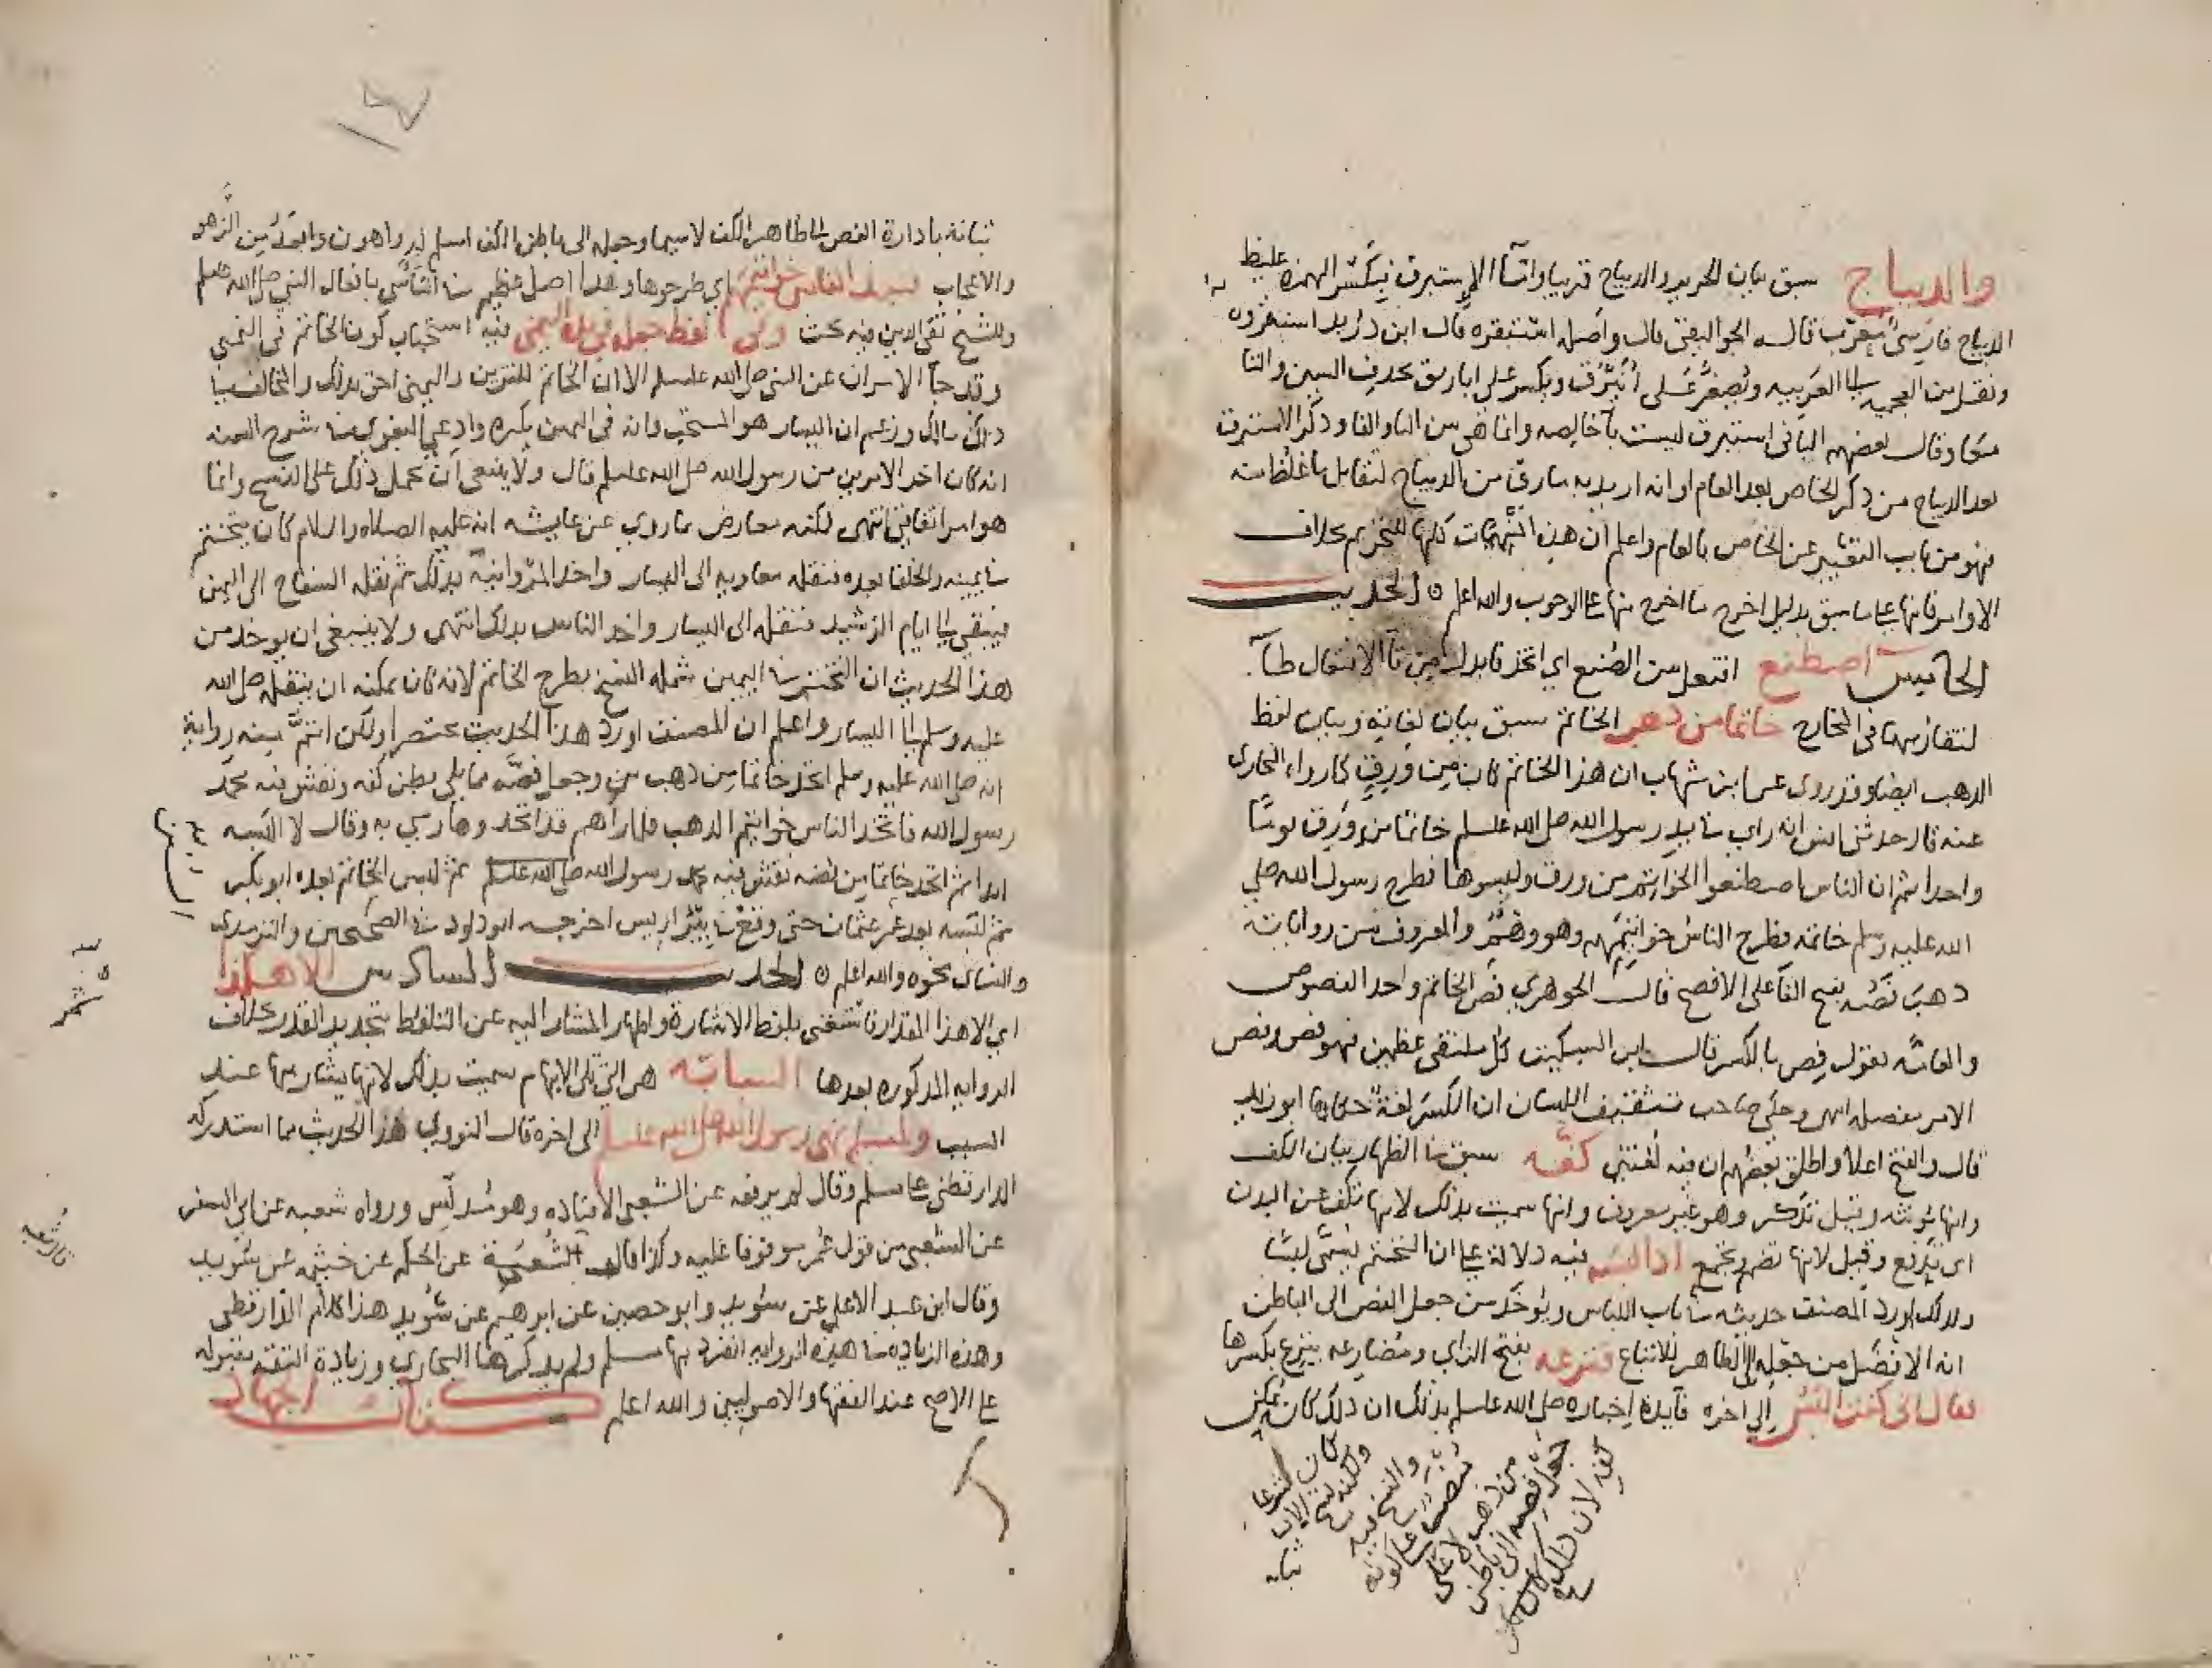 والديباج سبق بيان الحرير والديباج قريبا واما الاستبرق فبكسر الهمزة غليظ
الديباج فارسي معرب قاله الجواليقي قال واصله استقره قال ابن دريد استفروه
ونقل من العجمية الى العربيه ويصغر على ابيرق ويكسر على ابارق بحذف السين والتا
معا وقال بعضهم البا في استبرق ليست بآخالصه وانما هي بين البا والفا وذكر الاستبرق
بعد الديباج من ذكر الخاص بعد العام او انه اريد به مارق من الديباج ليقابل ما غلظ منه
فهو من باب التعبير عن الخاص بالعام واعلم ان هذه المنهيات كلها للتحريم بخلاف
الاوامر فانها على ما سبق بدليل اخرج ما اخرج منها عن الوجوب والله اعلم ه الحديث
الخامس اصطنع افتعل من الصنع اي اتخذ فابدل من تا الافتعال طآ
لتقاربهما في المخارج خاتما من ذهب الخاتم سبق بيان لغاته وبيان لفظ
الذهب ايضا وقد روى عن ابن شهاب ان هذا الخاتم كان من ورق كما رواه البخارى
عنه قال حدثني انس انه راى في يد رسول الله صلى الله عليه وسلم خاتما من ورق يوما
واحدا ثم ان الناس اصطنعوا الخواتيم من ورق ولبسوها فطرح رسول الله صلى
الله عليه وسلم خاتمه فطرح الناس خواتيمهم وهو وهم والمعروف من رواياته
ذهب فصه بفتح الفا على الافصح قال الجوهري فص الخاتم واحد الفصوص
والعامه تقول فص بالكسر قال ابن السكيت كل ملتقى عظمين فهو فص وفص
الامر مفصله انتهى وحكى صاحب تثقيف اللسان ان الكسر لغة حكاها ابو زيد
قال والفتح اعلا واطلق بعضهم ان فيه لغتين كفه سبق في الظهار بيان الكف
وانها مؤنثه وقيل تذكر وهو غير معروف وانها سميت بذلك لانها تكف عن البدن
اي تدفع وقيل لانها تضم وتجمع اذا لبسه فيه دلالة على ان التختم يسمى لبسا
ولذلك اورد المصنف حديثه في باب اللباس ويؤخذ من جعل الفص الى الباطن
انه الافضل من جعله الى الظاهر للاتباع فنزعه بفتح الزاي ومضارعه ينزع بكسرها
فقال اني كنت البس الى اخره فآيدة اخباره صلى الله عليه وسلم بذلك ان ذلك كان يمكن
كفه لان ذلك كان
جعل فصه الى باطن
من ذهب لا على
تنصيص على كونه
والنسخ فيه
ولكنه نسخ الان
وكان لبسه شرعا
ثباته
ثباته بادارة الفص الى ظاهر الكف لاسيما وجعله الى باطن الكف اسلم له واهون وابعد من الزهو
والاعجاب فنبذ الناس خواتيمهم اي طرحوها وهذا اصل عظيم في التأسي بافعال النبي صلى الله عليه وسلم
وللشيخ تقي الدين فيه بحث وفي لفظ جعله في يده اليمنى فيه استحباب كون الخاتم في اليمنى
وقد جآ الامران عن النبي صلى الله عليه وسلم الا ان الخاتم للتزين واليمنى احق بذلك والمخالف في
ذلك مالك وزعم ان اليسار هو المستحب وانه في اليمين يكره وادعى البغوي في شرح السنه
انه كان اخر الامرين من رسول الله صلى الله عليه وسلم قال ولا ينبغي ان يحمل ذلك على النسخ وانما
هو امر اتفاقي انتهى لكنه معارض بما روي عن عايشه انه عليه الصلاه والسلام كان يتختم
في يمينه والخلفا بعده فنقله معاويه الى اليسار واخذ المروانية بذلك ثم نقله السفاح الى اليمين
فبقى الى ايام الرشيد فنقله الى اليسار واخذ الناس بذلك انتهى ولا ينبغي ان يوخذ من
هذا الحديث ان التختم في اليمين شمله النسخ بطرح الخاتم لانه كان يمكنه ان ينقله صلى الله
عليه وسلم الى اليسار واعلم ان المصنف اورد هذا الحديث مختصرا ولكن اتم منه رواية
انه صلى الله عليه وسلم اتخذ خاتما من ذهب وجعل فصه مما يلي بطن كفه ونقش فيه محمد
رسول الله فاتخذ الناس خواتيم الذهب فلما راهم قد اتخذوها رمى به وقال لا البسه
ابدا ثم اتخذ خاتما من فضه نقش فيه محمد رسول الله صلى الله عليه وسلم ثم لبس الخاتم بعده ابو بكر
ثم لبسه بعد عمر عثمان حتى وقع في بئر اريس اخرجه ابو داود في الصحيحين والترمذي
والنساى نحوه والله اعلم ه الحديث السادس الا هكذا
اي الا هذا المقدار فاستغنى بلفظ الاشارة واظهار المشار اليه عن التلفظ بتحديد القدر بخلاف
الروايه المذكوره بعدها السبابه هي التي تلي الابهام سميت بذلك لانها يشار بها عند
السبب ولمسلم نهى رسول الله صلى الله عليه وسلم الى اخره قال النووي هذا الحديث مما استدركه
الدارقطني على مسلم وقال لم يرفعه عن الشعبي الا قتاده وهو مدلس ورواه شعبه عن ابي السفر
عن الشعبي من قول عمر موقوفا عليه وكذا قال شعبة عن الحكم عن خيثمه عن سويد
وقال ابن عبد الاعلى عن سويد وابو حصين عن ابرهيم عن سويد هذا كلام الدارقطنى
وهذه الزياده في هذه الروايه انفرد بها مسلم ولم يذكرها البخاري وزيادة الثقه مقبوله
على الاصح عند الفقها والاصوليين والله اعلم كتاب الجهاد